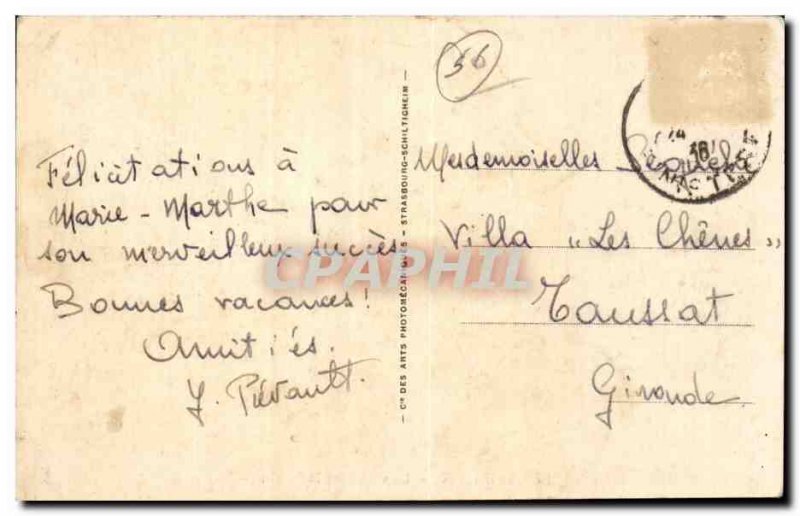 56
Félicitations à
Marie-Marthe pour
son merveilleux succès
Bonnes vacances !
Amitiés.
Cie DES ARTS PHOTOMÉCANIQUES - STRASBOURG-SCHILTIGHEIM
Mesdemoiselles
Villa "Les Chênes"
Taussat
Gironde
CPAPHIL